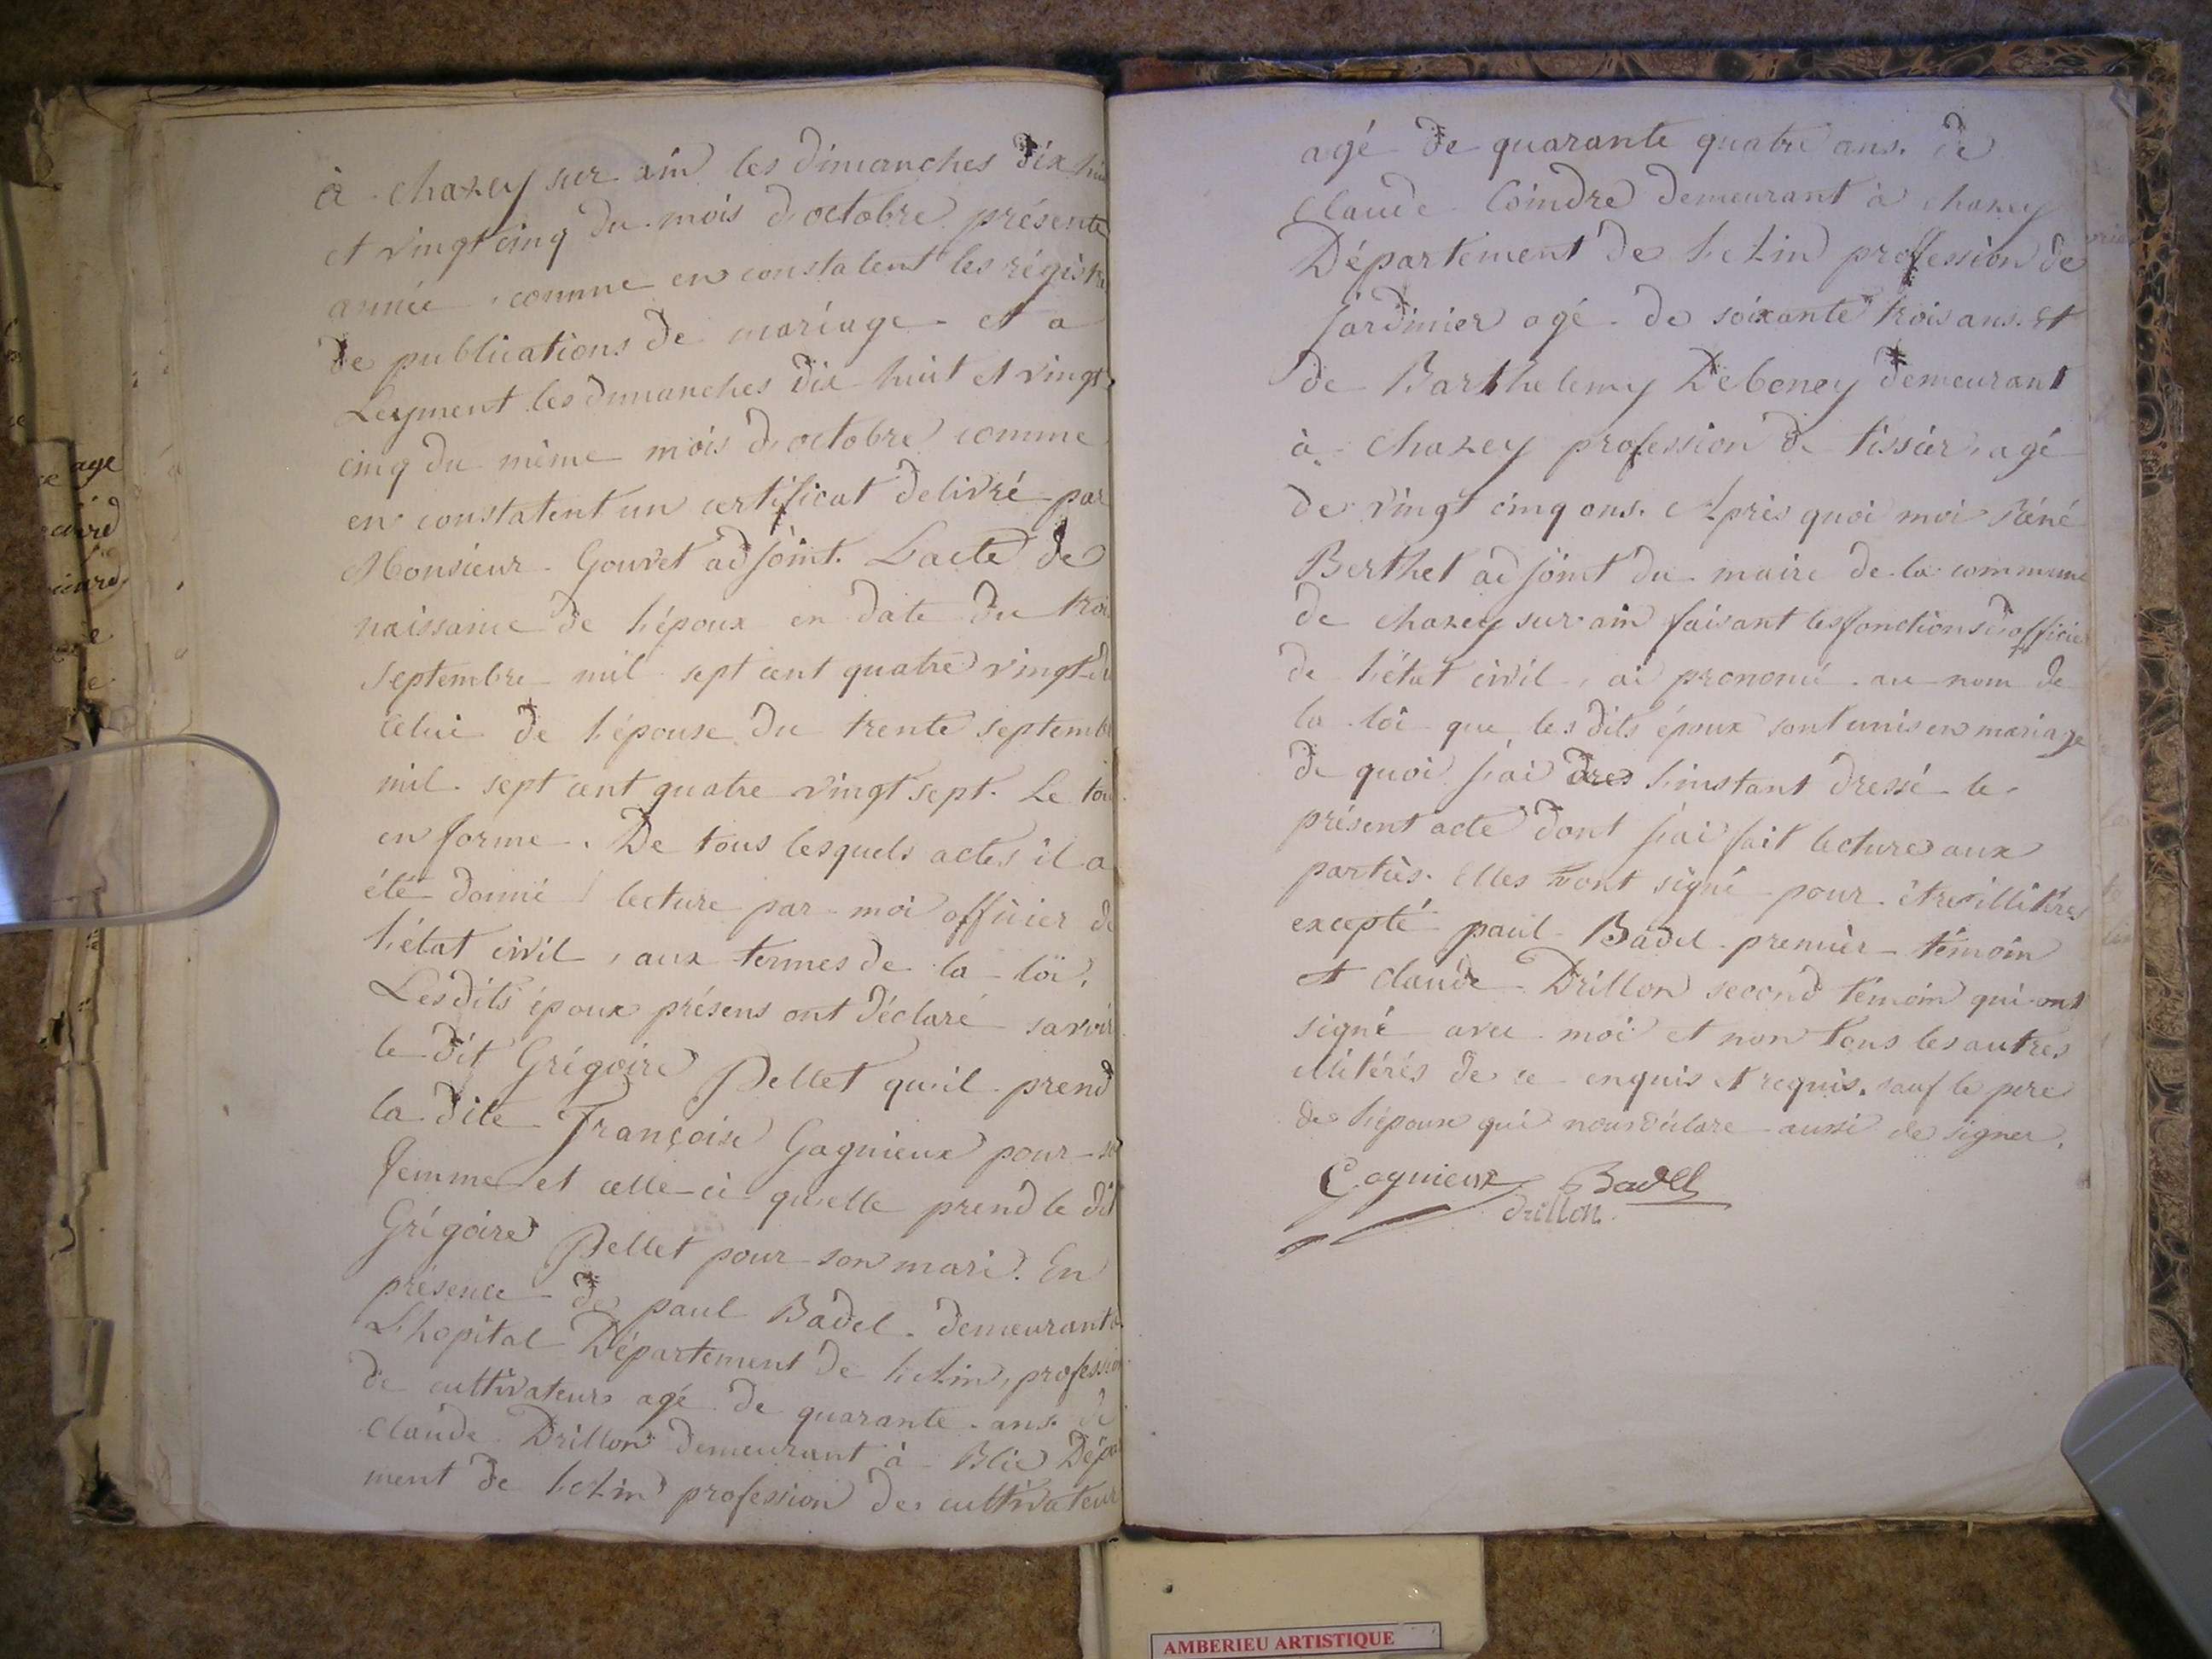 à chazey sur ain les dimanches dix hui
et vingt cinq du mois d'octobre présente
année, comme en constatent les régistre
de publications de mariage et a
Leyment les dimanches dix huit et vingt
cinq du même mois d'octobre comme
en constatent un certificat delivré par
Monsieur Gouvet adjoint. L'acte de
naissance de l'époux en date du trois
septembre mil sept cent quatre vingt
celui de l'épouse du trente septemb
mil sept cent quatre vingt sept. Le tou
en forme. De tous lesquels actes il a
été donné lecture par moi officier de
l'état civil, aux termes de la loi.
Les dits époux présens ont déclaré savoir
le dit Grégoire Pellet qu'il prend
la dite Françoise Gagnieux pour sa
femme et celle-ci qu'elle prend le dit
Grégoire Pellet pour son mari. En
présence de paul Badel demeurant à
L'hopital Département de l'Ain, profession
de cultivateur agé de quarante ans. de
Claude Drillon demeurant à Blie Dépar
ment de l'Ain profession de cultivateur
agé de quarante quatre ans. de
Claude Coindre demeurant à chazey
Département de l'Ain proffession de
jardinier agé de soixante trois ans. Et
de Barthelemy Deboney demeurant
à chazey profession de tissier, agé
de vingt cinq ans. Après quoi moi Réné
Berthet adjoint du maire de la commune
de chazey sur ain faisant les fonctions d'officie
de l'état civil, ai prononcé au nom de
la loi que les dits époux sont unis en mariage
de quoi j'ai dres l'instant dressé le
présent acte dont j'ai fait lecture aux
parties. Elles n'ont signé pour être illitérés
excepté paul Badel premier témoin
et Claude Drillon second témoin qui ont
signé avec moi et non tous les autres
illitérés de ce enquis et requis. sauf le pere
de l'épouse qui nous déclare aussi de signer.
Gagnieux Badel
Drillon
age
AMBERIEU ARTISTIQUE